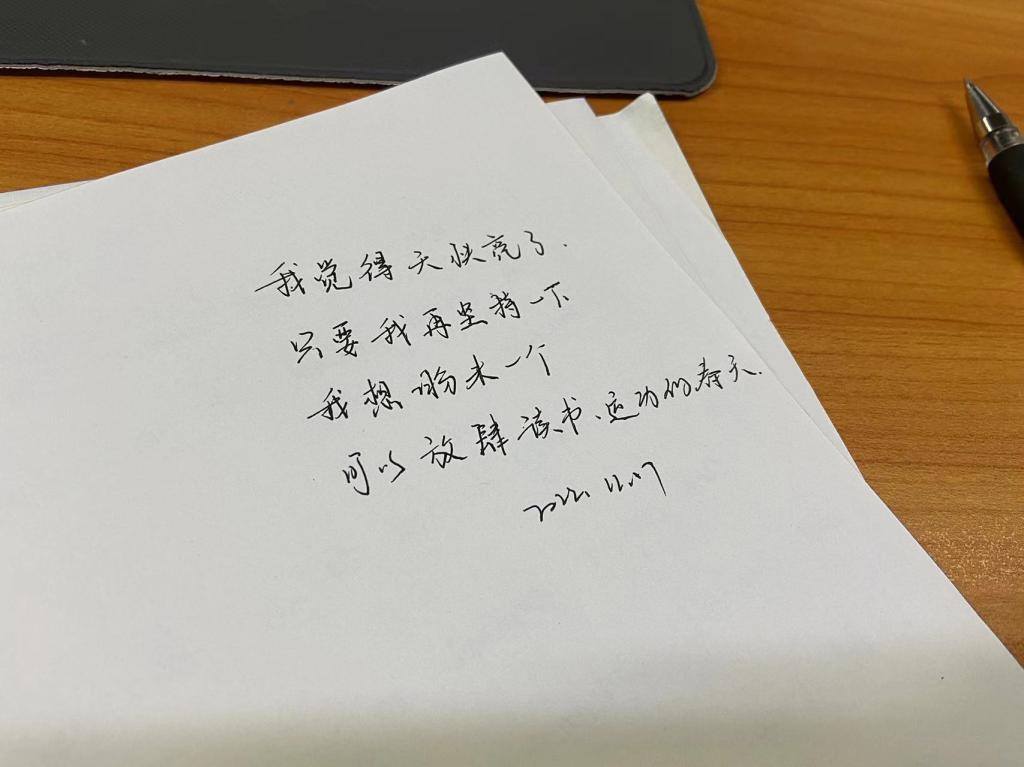 我觉得天快亮了.
只要我再坚持一下
我想盼来一个
可以放肆读书、运动的春天.
2022.12.07